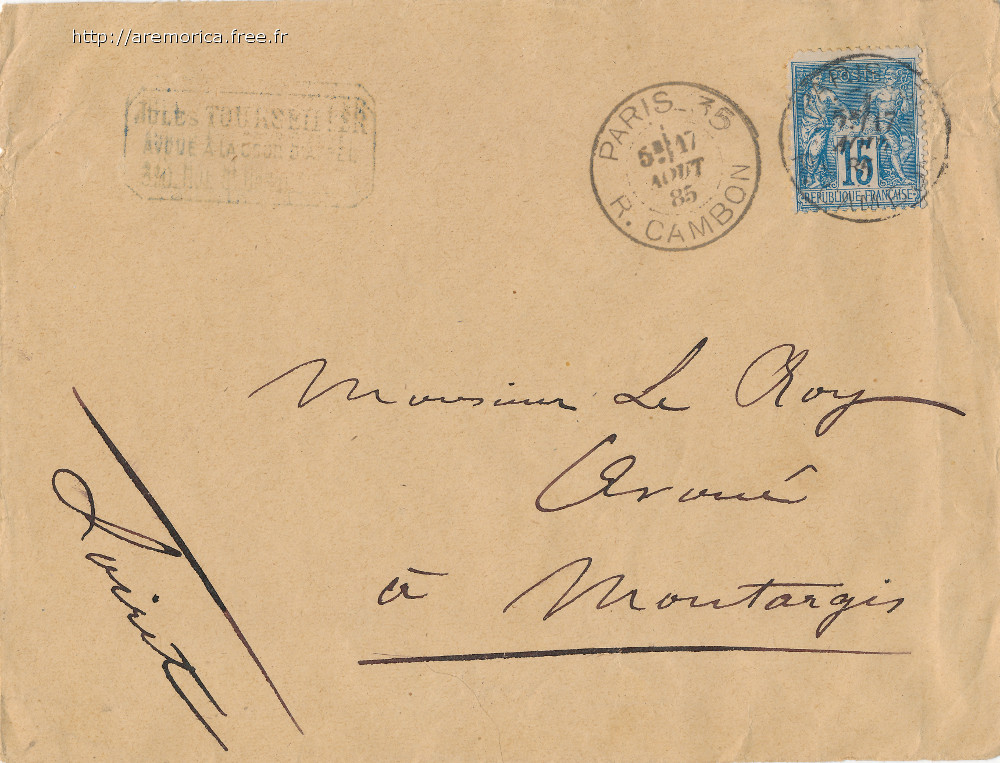 http://aremorica.free.fr
JULES TOURSEILLER
AVOUÉ À LA COUR D'APPEL
PARIS 35
5E/17
AOUT
85
R. CAMBON
POSTES
15
REPUBLIQUE FRANÇAISE
Monsieur Le Roy
Avoué
à Montargis
Loiret